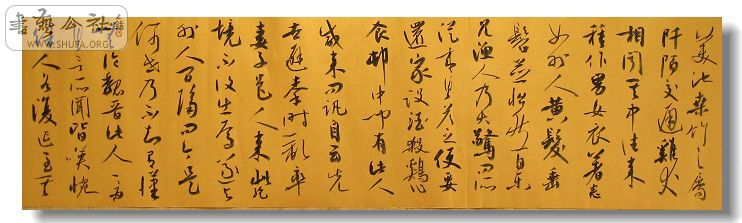 書艺公社
WWW.SHUFA.ORG
美池桑竹之属
阡陌交通雞犬
相聞其中往来
種作男女衣著悉
如外人黄髮垂
髫並怡然自樂
見漁人乃大驚問所
從来具答之便要
還家設酒殺鷄作
食村中聞有此人
咸来問訊自云先
世避秦時亂率
妻子邑人来此絶
境不復出焉遂與
外人間隔問今是
何世乃不知有漢
無論魏晋此人一一為
具言所聞皆嘆惋
餘人各復延至其